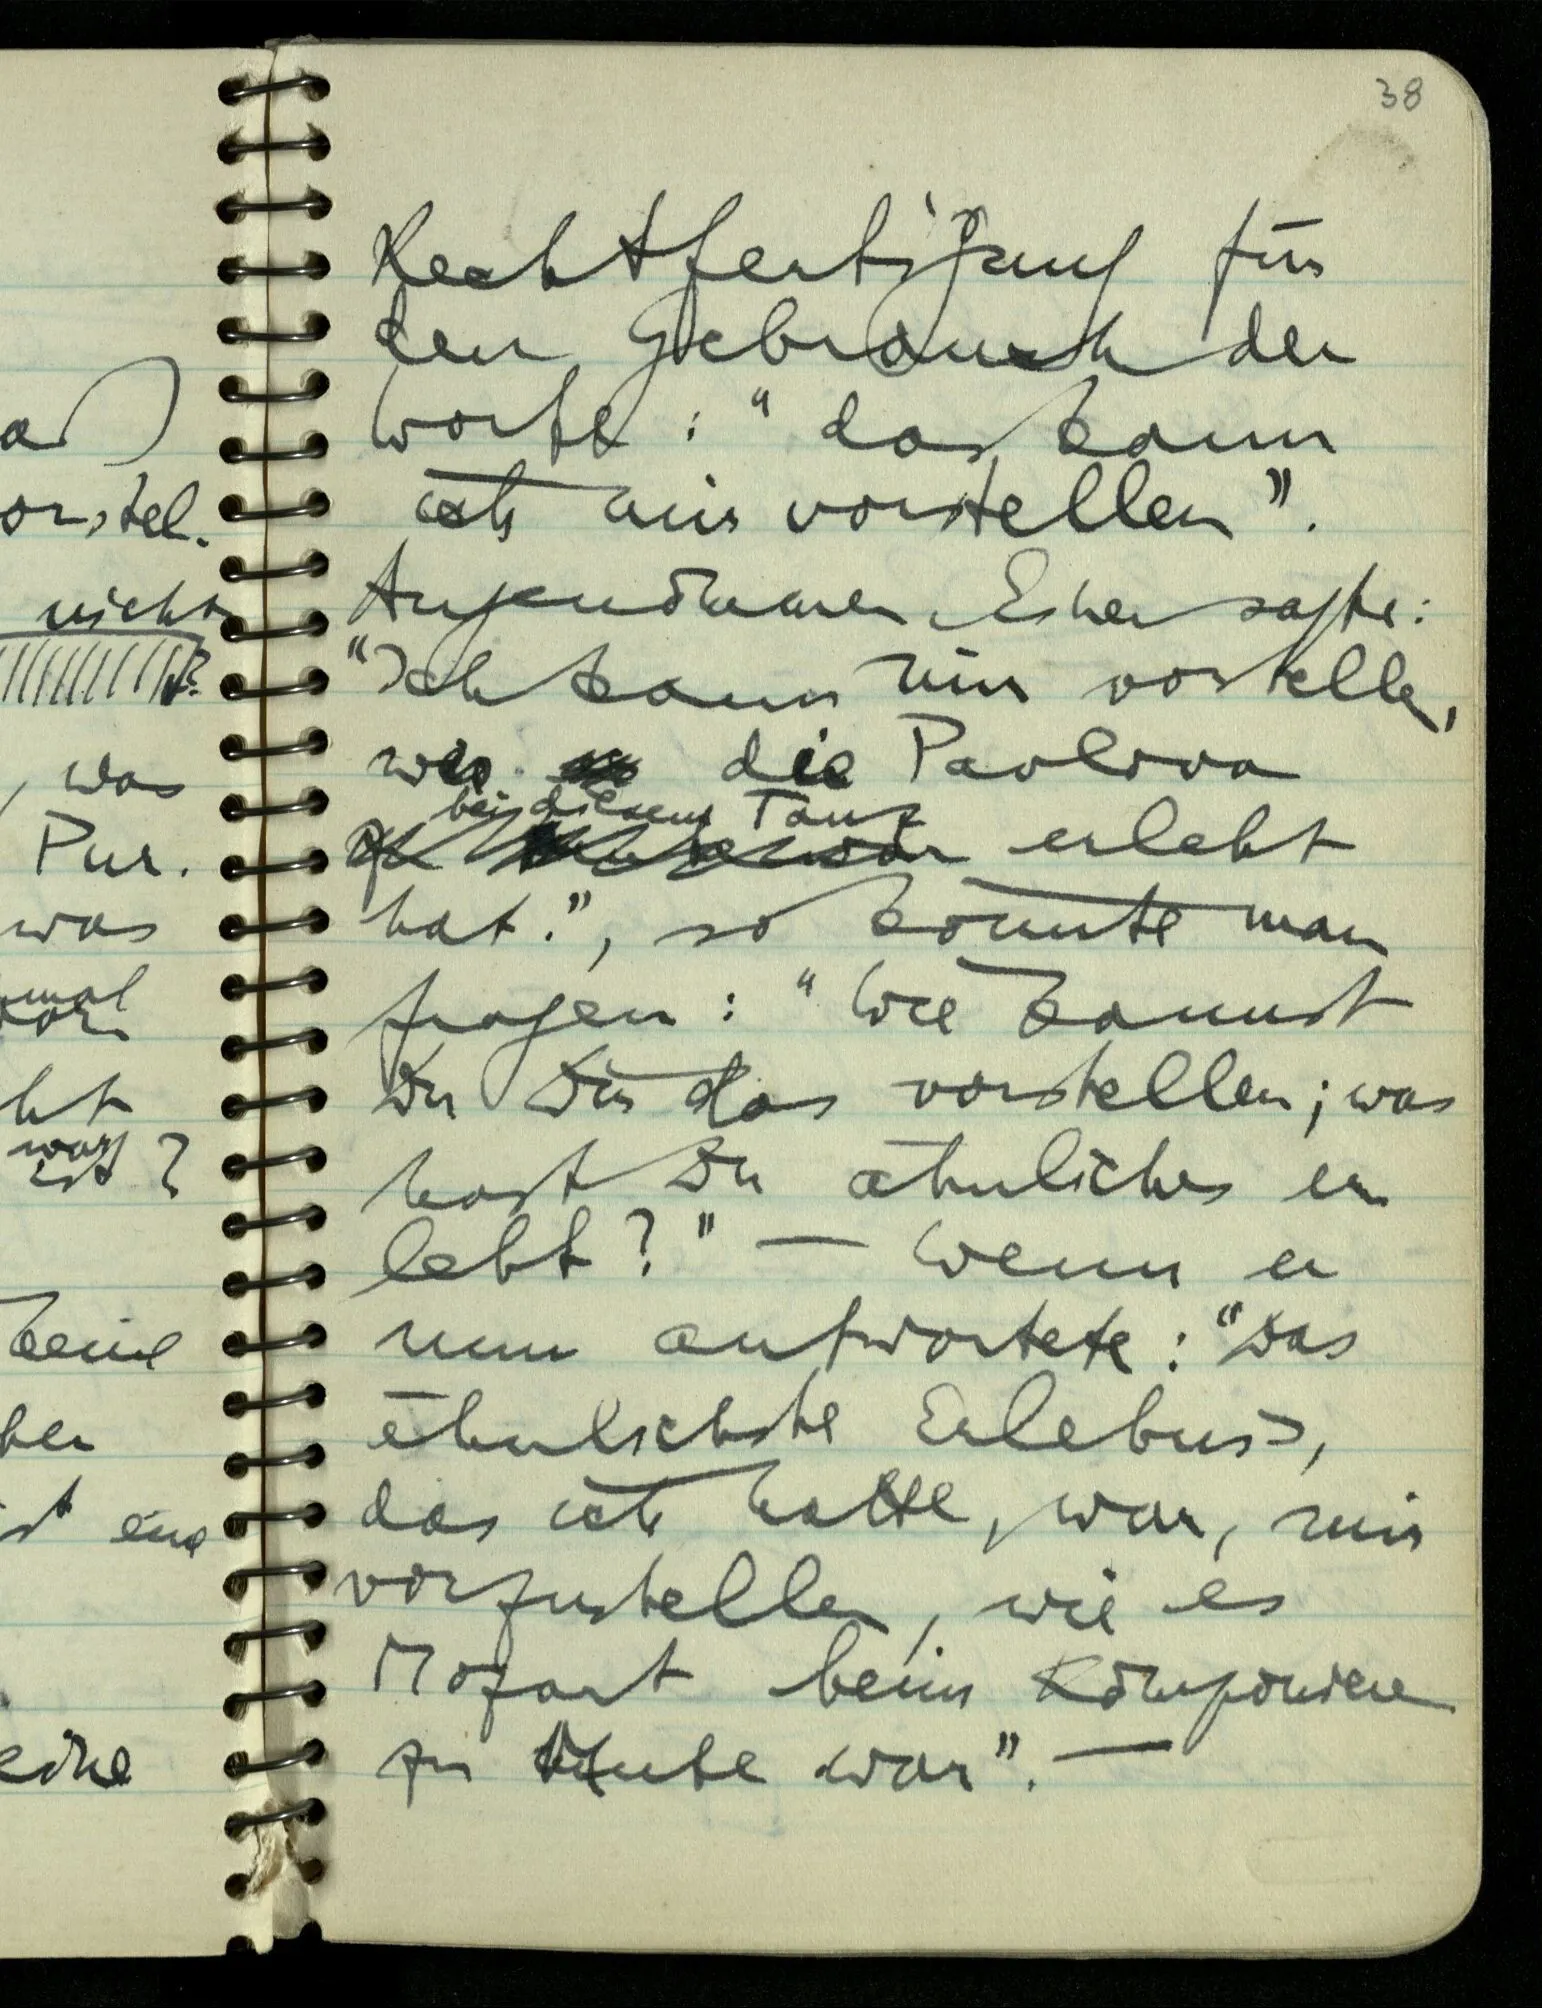 38
Rechtfertigung für
den Gebrauch der
Worte: "das kann
ich mir vorstellen".
Angenommen Einer sagte:
"Ich kann mir vorstellen,
was die Pavlova
bei diesem Tanz
erlebt
hat.", so könnte man
fragen: "Wie kannst
Du Dir das vorstellen; was
hast Du ähnliches er
lebt?" — Wenn er
nun antwortete: "Das
ähnlichste Erlebnis,
das ich hatte, war, mir
vorzustellen, wie es
Mozart beim Komponieren
zu Mute war". —
orstel.
nicht
, was
Pur.
was
mal
ht
war
ist?
keine
ben
ist eine
eine